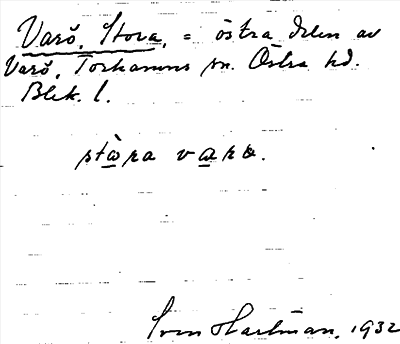 Varö, Stora, = östra delen av
Varö, Torhamns sn. Östra hd.
Blek. l.
stòra varö.
Sven Hartman, 1932